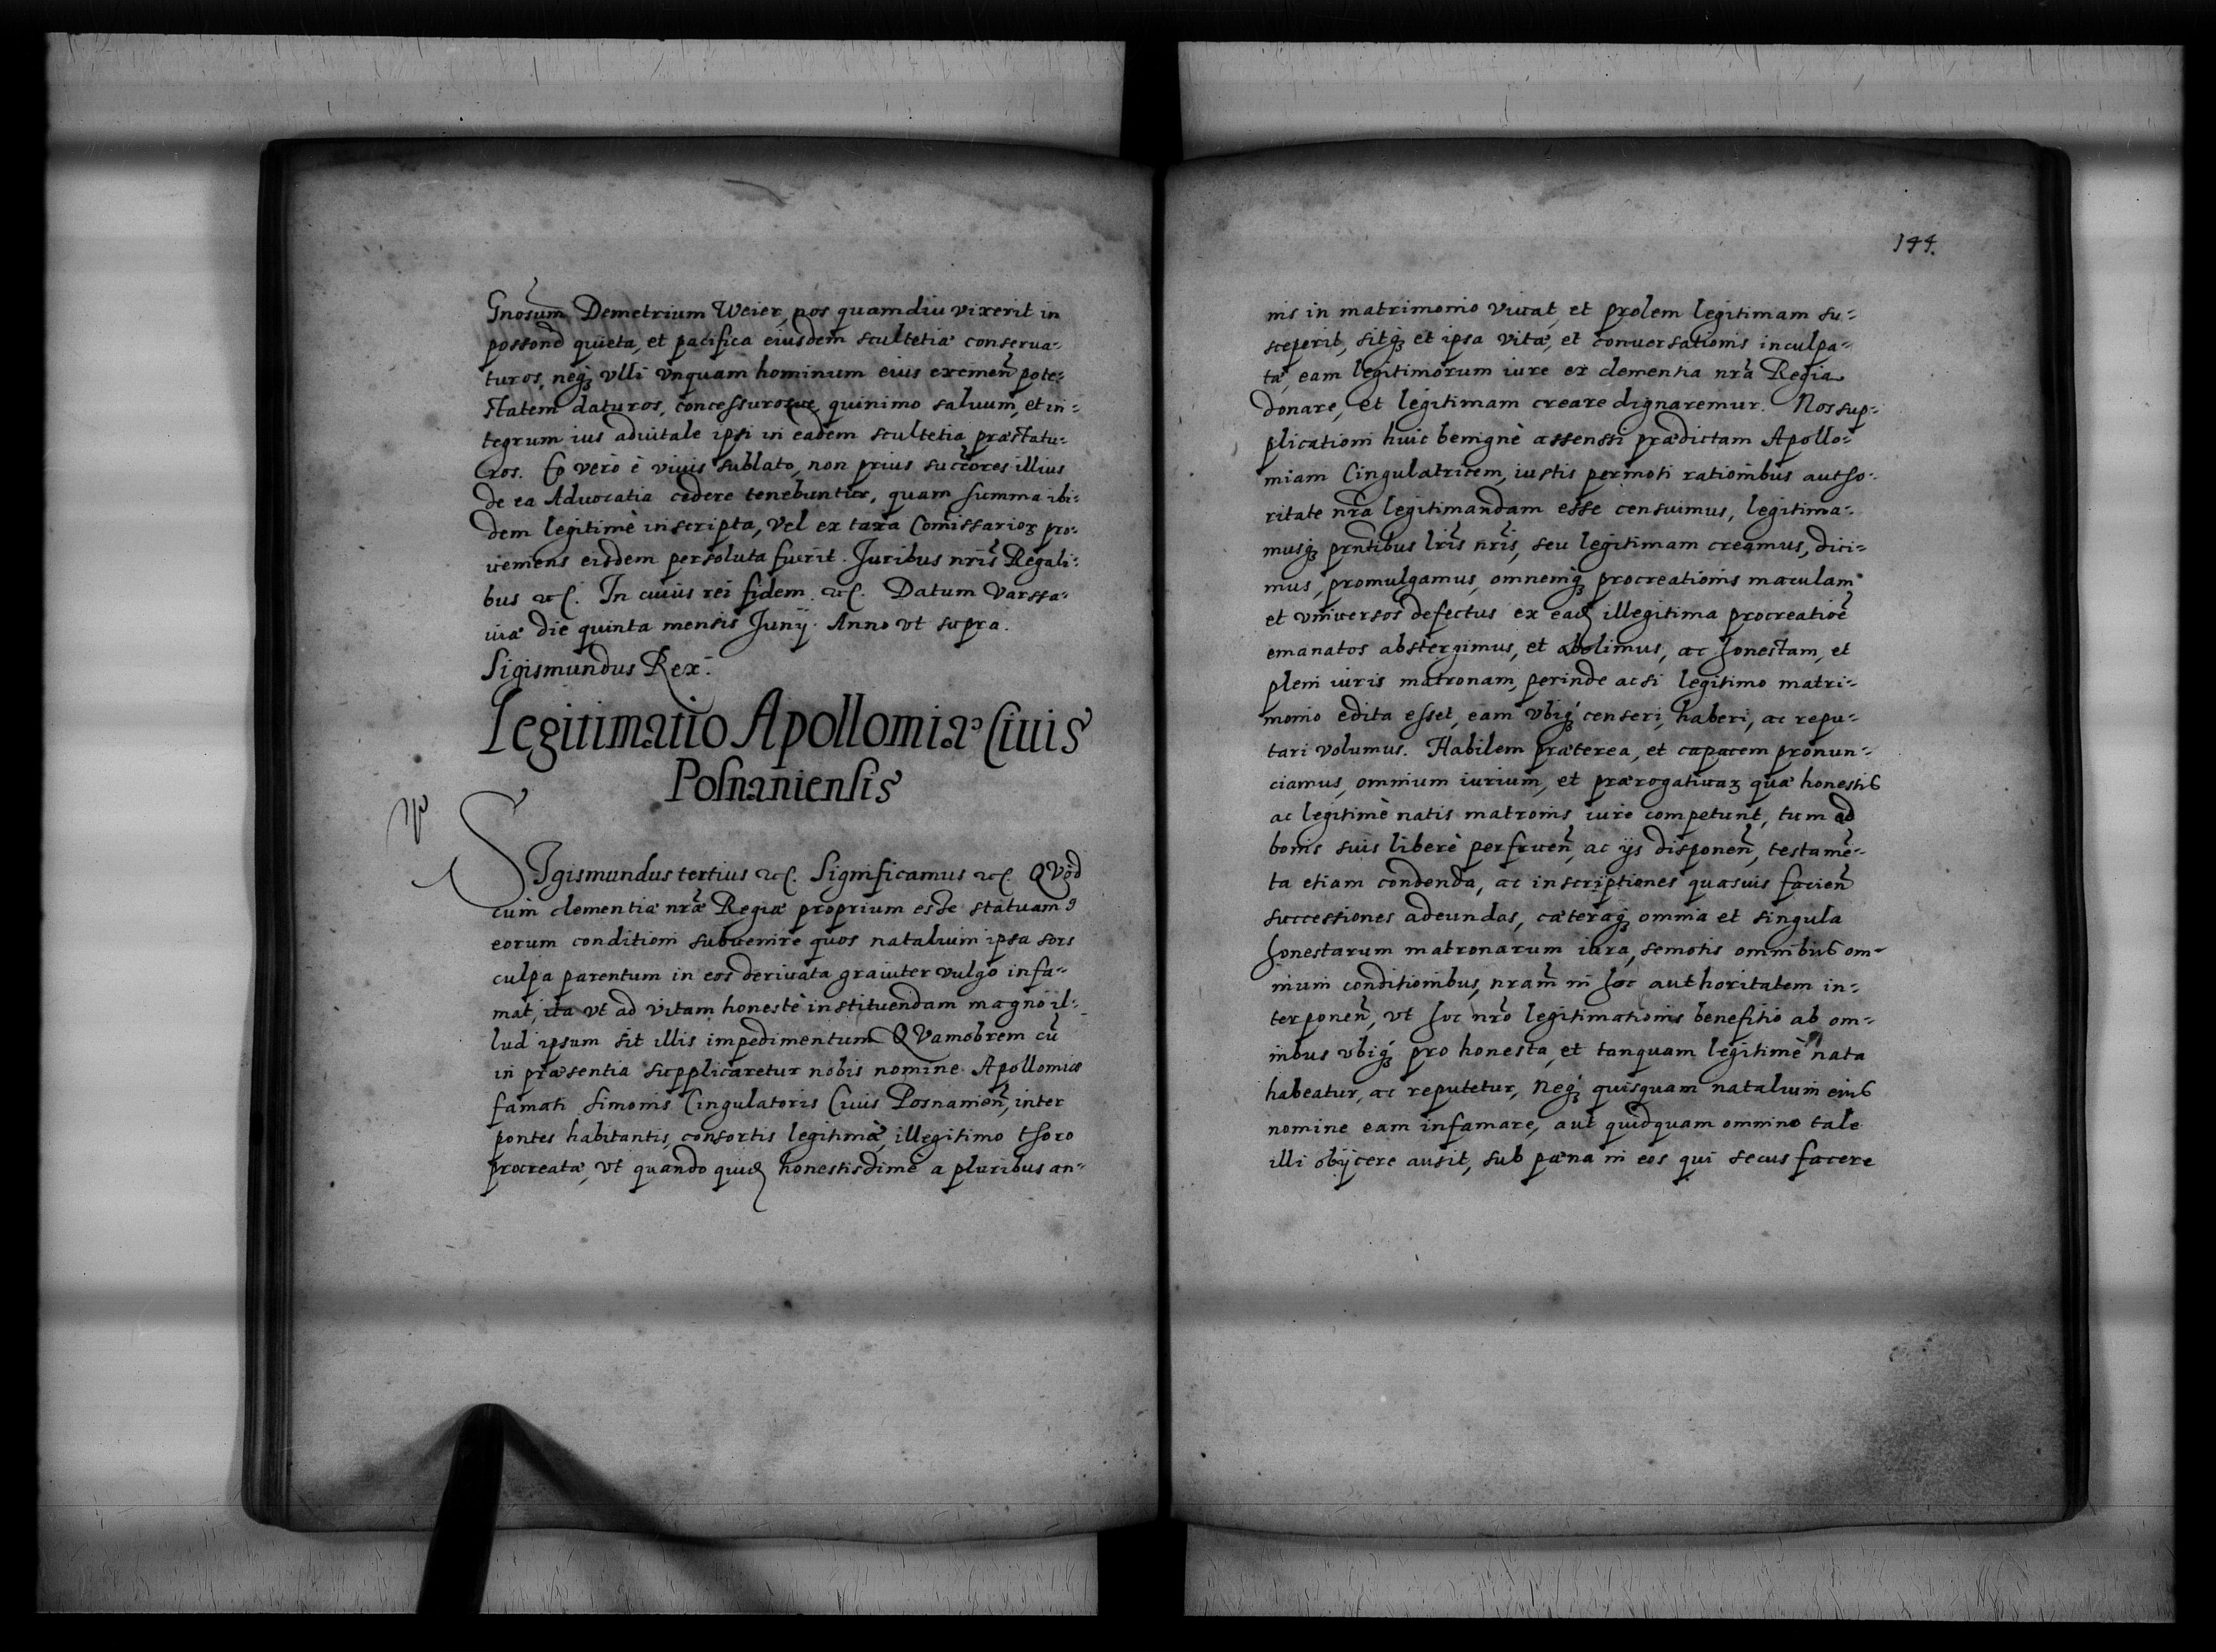 Gnosum Demetrium Weier, nos quamdiu vixerit in
possond quieta, et pacifica eiusdem scultetiæ conserua-
turos, neq3 vlli vnquam hominum eius eximen pote-
statem daturos, concessurosue, quinimo saluum, et in-
tegrum ius aduitale ipsi in eadem scultetia præstatu-
ros. Eo verò è viuis sublato, non prius succores illius
de ea Aduocatia cedere tenebuntur, quam summa ibi-
dem legitimè inscripta, vel ex taxa Comissarior pro-
ueniens eisdem persoluta fuerit. Juribus nris Regali-
bus etc. In cuius rei fidem etc. Datum Varssa-
uiæ die quinta mensis Junij. Anno vt supra.
Sigismundus Rex.
Legitimatio Apollomiæ Ciuis
Posnaniensis
SIgismundus tertius etc. Significamus etc. QVod
cum clementiæ nræ Regiæ proprium esse statuam9
eorum conditioni subuenire quos natalium ipsa sors
culpa parentum in eos deriuata grauiter vulgo infa-
mat, ita vt ad vitam honestè instituendam magno il-
lud ipsum sit illis impedimentum QVamobrem cu
in præsentia supplicaretur nobis nomine Apollomiæ
famati Simonis Cingulatoris Ciuis Posnanien, inter
pontes habitantis, consortis legitimæ, illegitimo thoro
procreatæ, vt quando quid honestissimè a pluribus an-
144.
nis in matrimonio viuat, et prolem legitimam su-
sceperit, sitq3 et ipsa vitæ, et conuersationis inculpa-
tæ, eam legitimorum iure ex clementia nra Regia
donare, et legitimam creare dignaremur. Nos sup-
plicationi huic benignè assensi prædictam Apollo-
miam Cingulatricem, iustis permoti rationibus autho-
ritate nra legitimandam esse censuimus, legitima-
musq3 prntibus lris nris, seu legitimam creamus, dici-
mus, promulgamus, omnemq3 procreationis maculam
et vniuersos defectus ex ead illegitima procreatioe
emanatos abstergimus, et abolimus, ac honestam, et
pleni iuris matronam, perinde ac si legitimo matri-
monio edita esset, eam vbiq3 censeri, haberi, ac repu-
tari volumus. Habilem præterea, et capacem pronun-
ciamus, omnium iurium, et prærogatiuar quæ honestis
ac legitimè natis matronis iure competunt, tum ad
bonis suis liberè perfruen, ac ijs disponen, testame-
ta etiam condenda, ac inscriptiones quasuis facien
successiones adeundas, cæteraq3 omnia et singula
honestarum matronarum iura, semotis omnibus om-
nium conditionibus, nram in hoc authoritatem in-
terponen, vt hoc nro legitimationis benefitio ab om-
nibus vbiq3 pro honesta, et tanquam legitimè nata
habeatur, ac reputetur, neq3 quisquam natalium eius
nomine eam infamare, aut quidquam omnino tale
illi obijcere ausit, sub pæna in eos qui secus facere